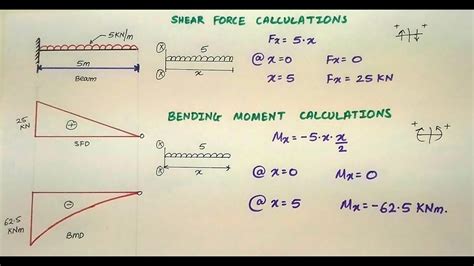 SHEAR FORCE CALCULATIONS
5KN/m
5m
Beam
x
5
x
x
Fx = 5·x
@ x=0 Fx=0
x=5 Fx= 25 KN
+ +
25
KN
+
SFD
BENDING MOMENT CALCULATIONS
Mx = -5·x·x/2
+ +
x
5
x
x
@ x=0 Mx=0
@ x=5 Mx=-62.5 KNm.
62.5
KNm
-
BMD